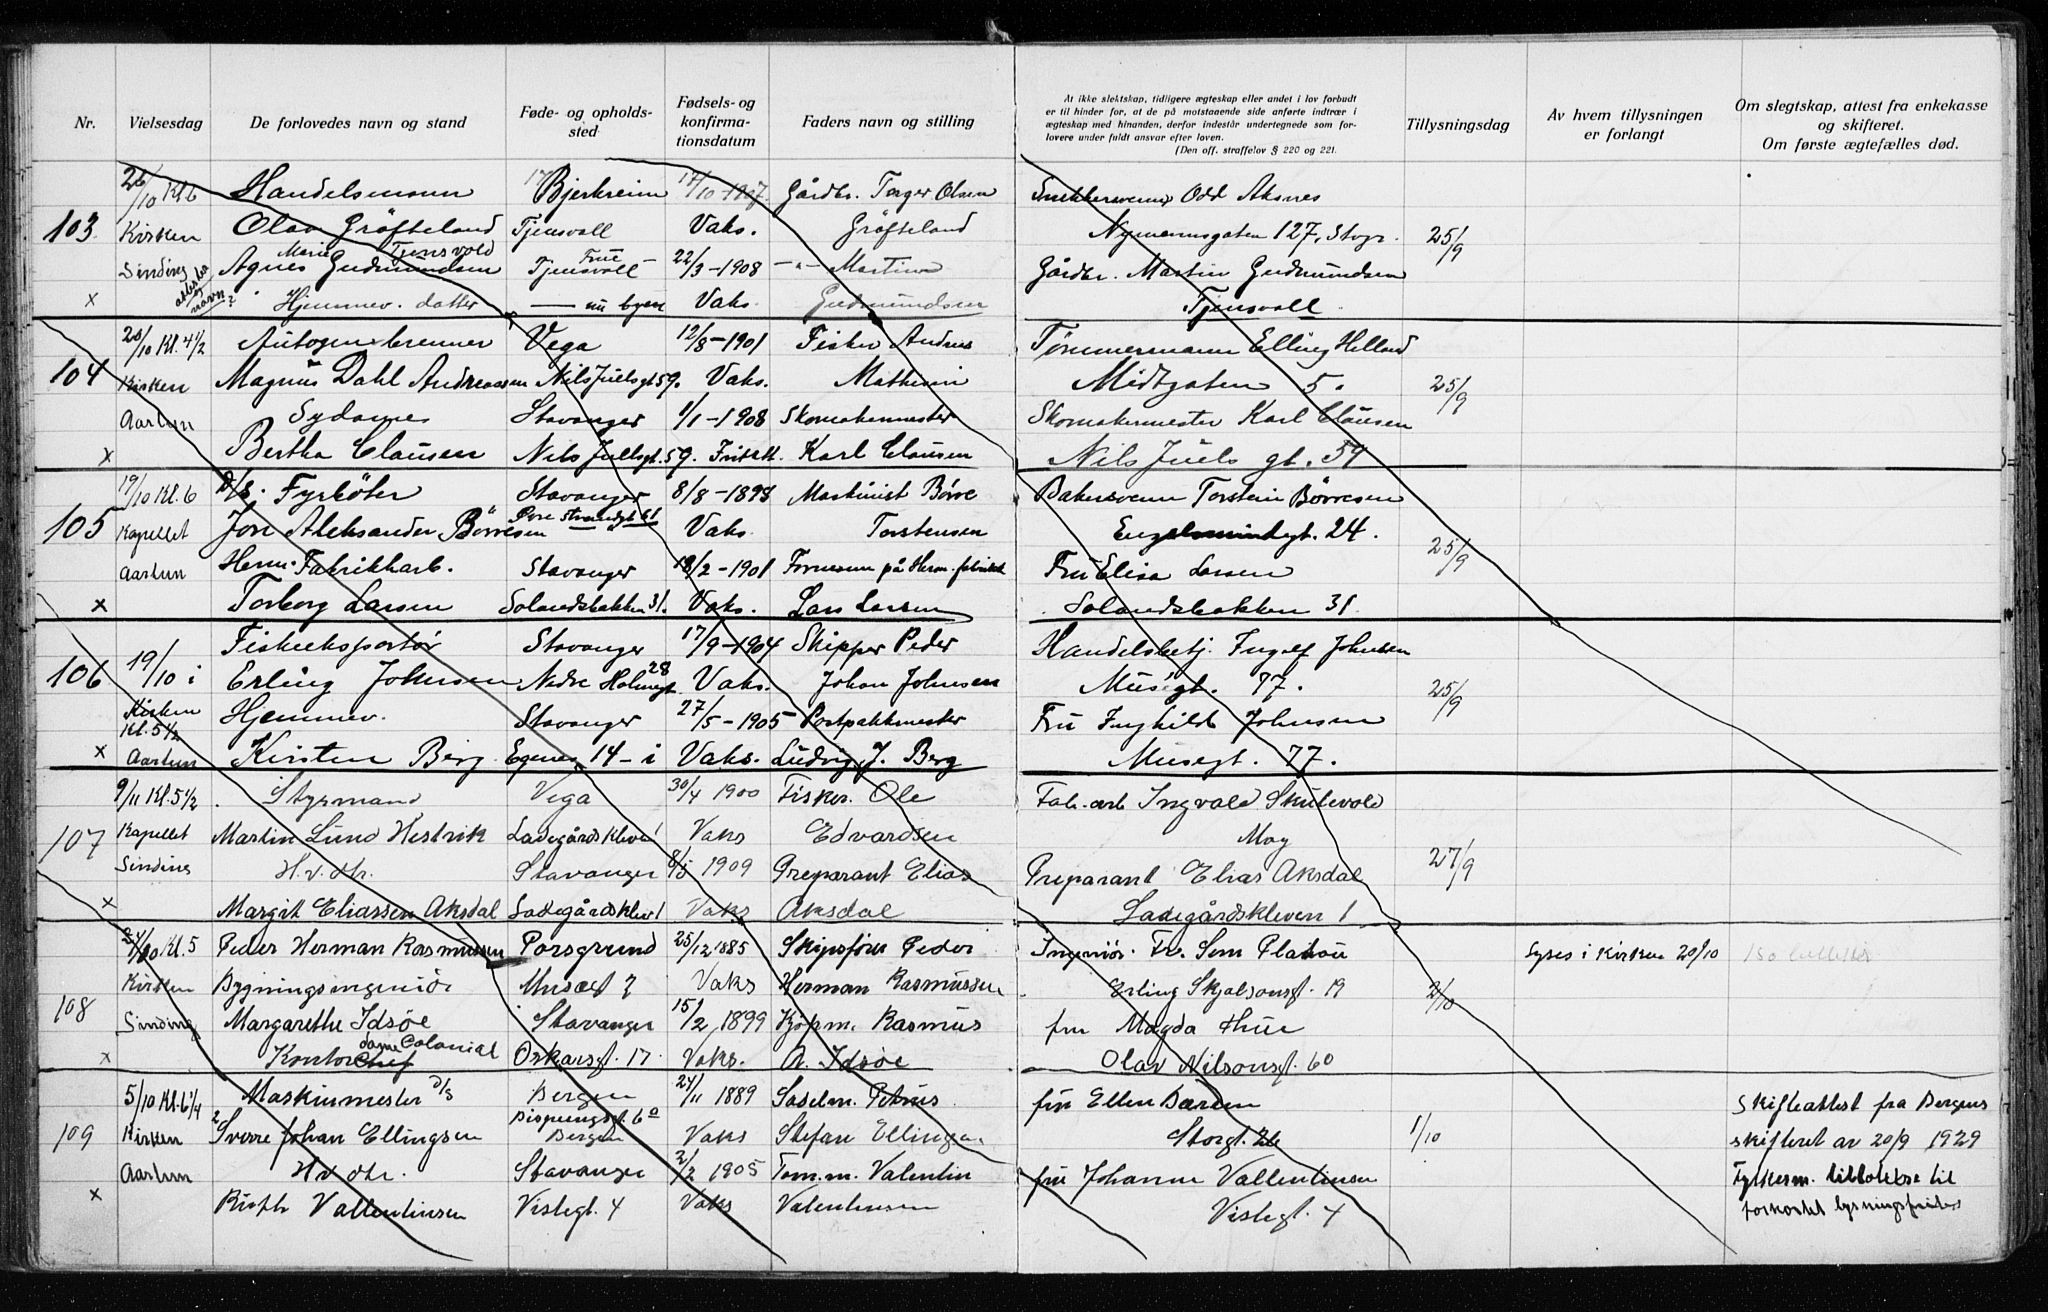 Nr.
Vielsesdag
De forlovedes navn og stand
Føde- og opholds-
sted
Fødsels- og
konfirma-
tionsdatum
Faders navn og stilling
At ikke slektskap, tidligere ægteskap eller andet i lov forbudt
er til hinder for, at de på motstaaende side anførte indtrær i
ægteskap med hinanden, derfor indestår undertegnede som for-
lovere under fuldt ansvar efter loven.
(Den off. straffelov § 220 og 221.
Tillysningsdag
Av hvem tillysningen
er forlangt
Om slegtskap, attest fra enkekasse
og skifteret.
Om første ægtefælles død.
26/10 Kl 6 Handelsmann Bjerkreim 17/10-1907 Gårdbr. Torger Olsen Odd Aksnes
103 Kirken Olav Gräfteland Tjensvoll Vaks. Gräfteland 127, Stvgr. 25/9
Marie Tjensvold
Sinding Agnes Gudmundsen Tjensvoll 22/3-1908 -"- Martin Gårdbr. Martin Gudmundsen
navn?
x Hjemmev. datter nu byen Vaks. Gudmundsen Tjensvoll
20/10 Kl. 4 1/2 Autogenbrenner Vega 12/8-1901 Fisker Andreas Tømmermann Elling Helland
104 Kirken Magnus Dahl Andreassen Nils Juelsgt 59. Vaks. Mathesin Midtgaten 5. 25/9
Aarlun Sydame Stavanger 1/1-1908 Skomakermester Skomakermester Karl Clausen
x Bertha Clausen Nils Juelsgt. 59. Karl Clausen Nils Juels gt. 59
19/10 Kl. 6 D/S. Fyrbøter Stavanger 8/8-1898 Maskinist Børre Bakersvenn Torstein Børresen
105 Kapellet Jore Aleksander Børresen Øvre strandgt 61 Vaks Torstensen Engelsmindegt. 24. 25/9
Aarlun Herm. Fabrikkarb. Stavanger 18/2-1901 Formann på Herm. fabrikk Fru Elisa Larsen
x Torborg Larsen Solandsbakken 31. Vaks. Lars Larsen Solandsbakken 31.
19/10 i Fiskeeksportør Stavanger 17/9-1904 Skipper Peder Handelsbetj. Ingolf Johnsen
106 Kirken Erling Johnsen Nedre Holmegt. 28 Vaks. Johan Johnsen Musegt. 77. 25/9
Kl. 5 1/2 Hjemmev. Stavanger 27/5-1905 Postpakkmester Fru Inghild Johnsen
x Aarlun Kirsten Berg Egenes 14-i Vaks. Ludvig J. Berg Musegt. 77.
9/11 Kl. 5 1/2 Styrmand Vega 30/4 1900 Fisker. Ole Fab. arb Ingvald Skutevold
107 Kapellet Martin Lund Hestvik Ladegårdskleven 1 Vaks Edvardsen May 27/9
Sinding H.v. dtr. Stavanger 8/5 1909 Preparant Elias Preparant Elias Aksdal
x Margit Eliassen Aksdal Ladegårdsklev 1 Vaks Aksdal Ladegårdskleven 1
Kl. 5 Peder Herman Rasmussen Porsgrund 25/12 1885 Skipsfører Peder Ingeniør Fr. Som Platou Lyses i Kirken 20/10
108 Kirken Bygningsingeniør Musegt 7 Vaks Herman Rasmussen Erling Skjalsonsgt. 19 2/10
Sinding Margarethe Idsøe Stavanger 15/2 1899 Kjøpm. Rasmus fru Magda Thue
x Kontordame Colonial Oskarsgt. 17 Vaks. A. Idsøe Olav Nilsonsgt. 60
5/10 Kl. 6 1/4 Maskinmester D/S Bergen 24/11 1889 Sadelm. Petrus fru Ellen Bærem Skifteattest fra Bergens
109 Kirken Sverre Johan Ellingsen Bergen Vaks Stefan Ellingsen Storgt. 26 1/10 skifteret av 20/9 1929
Aarlun H.v. dtr. Stavanger 2/2 1905 Tom.m. Valentin fru Johanne Vallentinsen Fylkesm. tillatelse til
x Ruth Vallentinsen Vistegt. 4 Vaks Valentinsen Vistegt. 4 forkortet lysningsfrist